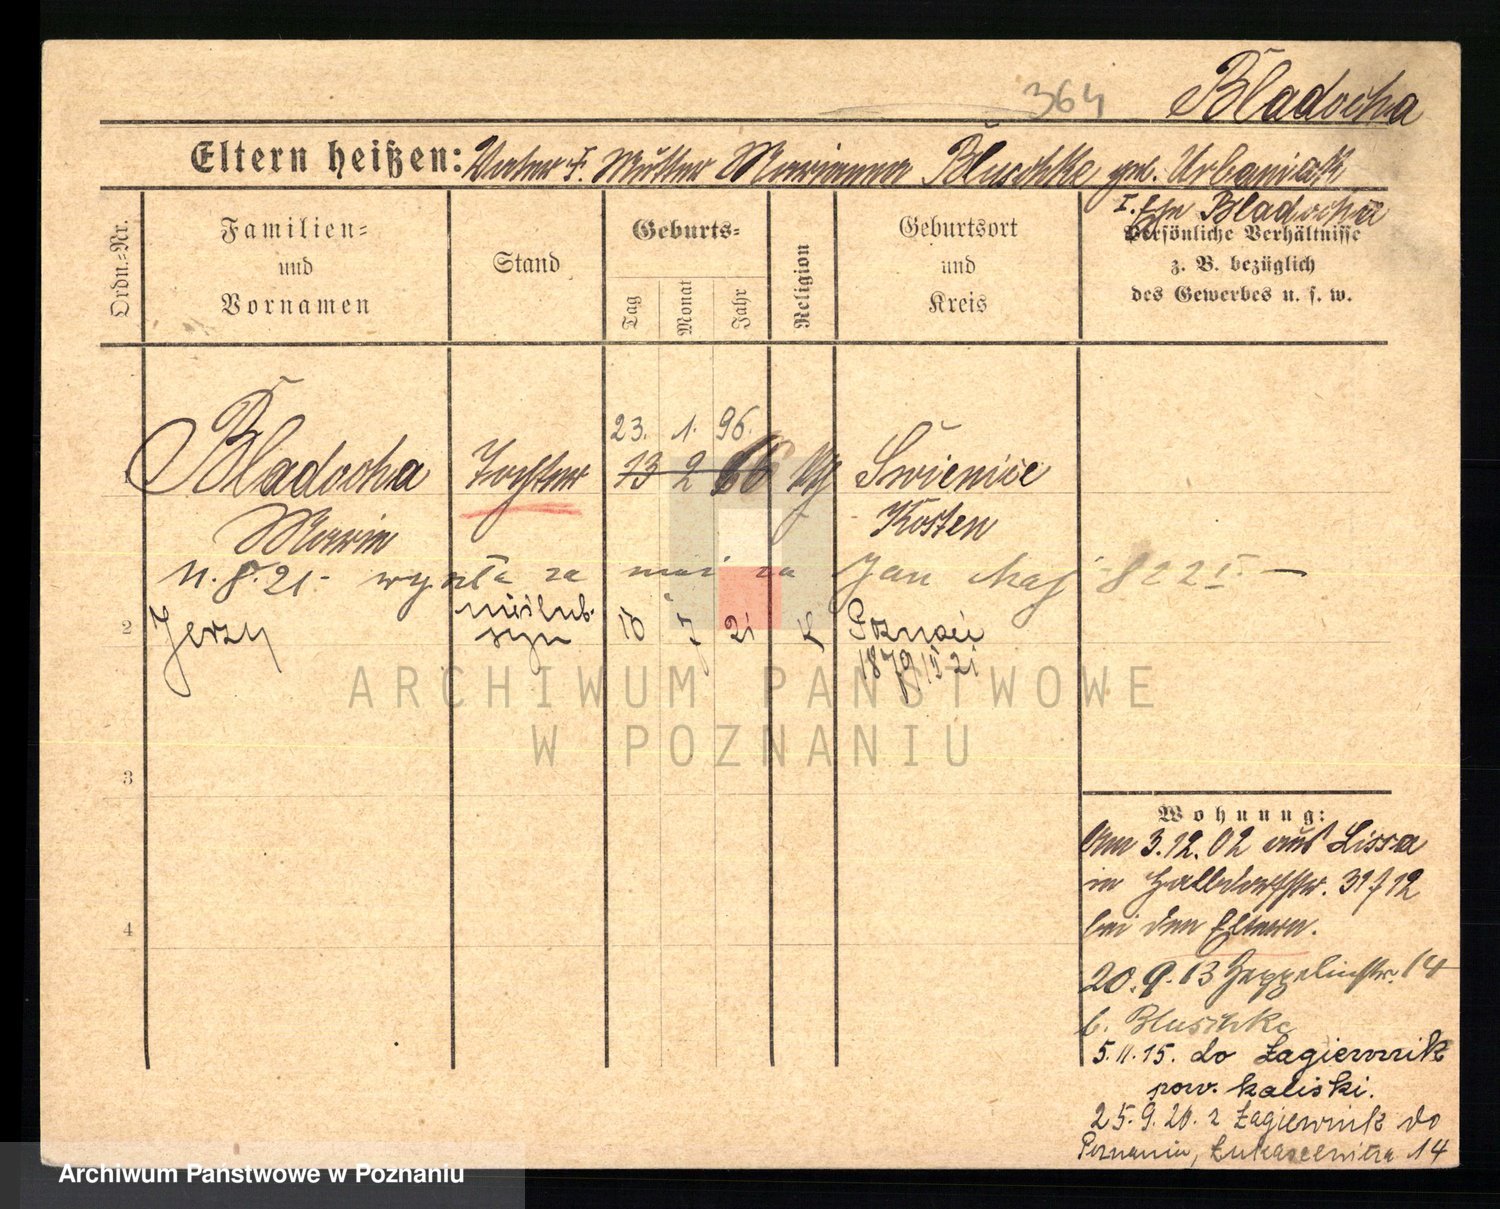 364
Bladocha
Eltern heißen: Vater †. Mutter Marianna Bluschke geb. Urbaniak
I. Ehe Bladocha
Ordn.-Nr.
Familien-
und
Vornamen
Stand
Geburts-
Tag
Monat
Jahr
Religion
Geburtsort
und
Kreis
Persönliche Verhältnisse
z. B. bezüglich
des Gewerbes u. s. w.
23. 1. 96.
1 Bladocha Tochter 13 2 66 kth Swienice
Marie Kosten
11.8.21. wyszła za mąż za Jan Maj
nieślub.
2 Jerzy syn 10 7 21 K Poznań
ARCHIWUM PAŃSTWOWE
W POZNANIU
3
4
Wohnung:
Am 3.12.02 aus Lissa
in Halbdorfstr. 31 f 12
bei den Eltern.
20.9.13 Zeppelinstr. 14
b. Bluschke
5.11.15. do Łagiewnik
pow. kaliski.
25.9.20. z Łagiewnik do
Poznania, 14
Archiwum Państwowe w Poznaniu